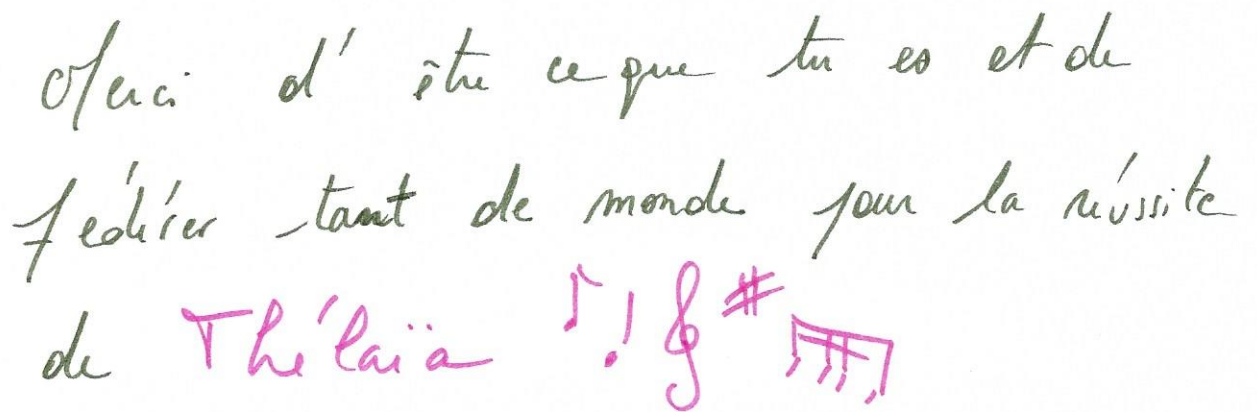 Merci d'être ce que tu es et de
fédérer tant de monde pour la réussite
de Thélaïa